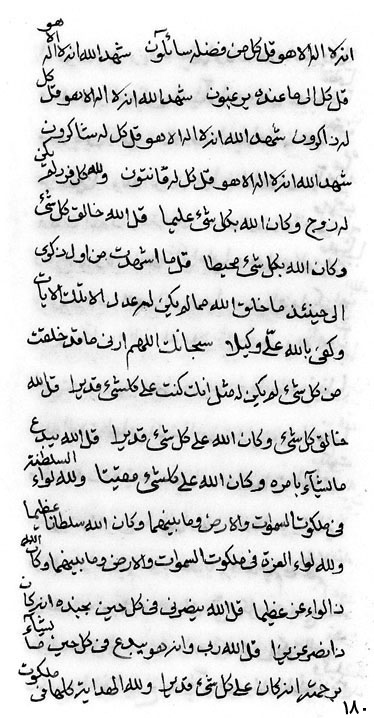 انه لا اله الا هو قل كل من فضله سائلون شهد الله انه لا اله الا هو
قل كل الى ما عنده يرغبون شهد الله انه لا اله الا هو قل كل
له ذاكرون شهد الله انه لا اله الا هو قل كل له شاكرون
شهد الله انه لا اله الا هو قل كل له قانتون ولله كل فرد لم يكن
له زوج وكان الله بكل شئ عليما قل الله خالق كل شئ
وكان الله بكل شئ محيطا قل ما اشهدت من اول ذكرى
الى حينئذ ما خلق الله مما لم يكن له عدل الا تلك الايات
وكفى بالله على وكيلا سبحانك اللهم ارنى ما قد خلقت
من كل شئ لم يكن له مثل انك كنت على كلشئ قديرا قل الله
خالق كل شئ وكان الله على كل شئ قديرا قل الله يبدع
ما يشآء بامره وكان الله على كلشئ مقيتا ولله لواء السلطنة
فى ملكوت السموات والارض وما بينهما وكان الله سلطانا عظيما
ولله لواء العزة فى ملكوت السموات والارض وما بينهما وكان الله
ذا لواء عز عظيما قل الله ينصرنى فى كل حين بجنده انه كان
ذا نصر عزيزا قل الله ربى وانه هو يبدع فى كل حين ما يشآء
برحمته انه كان على كل شئ قديرا ولله الهداية كلها فى ملكوت
١٨٠